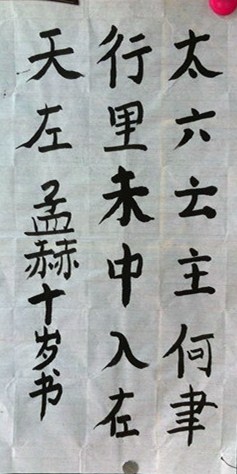 太六云主何聿
行里未中入左
天左 孟赫十岁书